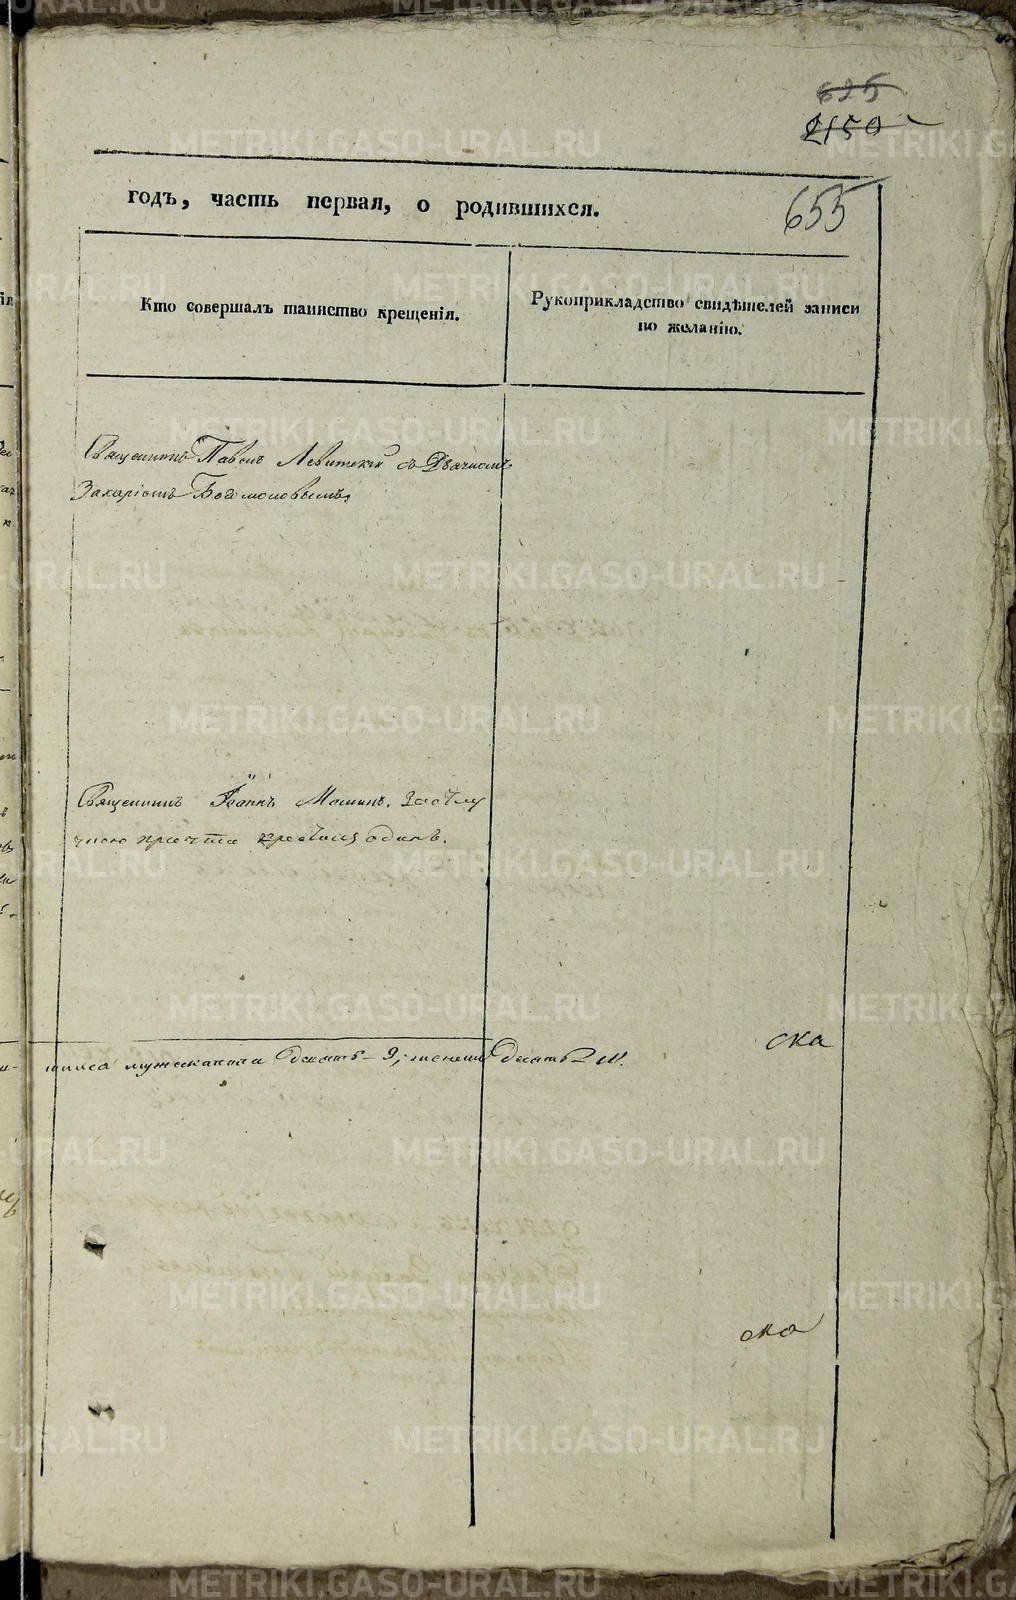 625
2150
655
годъ, часть первая, о родившихся.
Кто совершалъ таинство крещенія.
Рукоприкладство свидѣтелей записи
по желанію.
Священникъ Павелъ Левитскій съ Дьячкомъ
Захаріемъ Богомоловымъ,
Священникъ Іоаннъ Машинъ.
причта крестилъ одинъ.
мужеска пола 9, женска Десять
ска
ска
METRIKI.GASO-URAL.RU